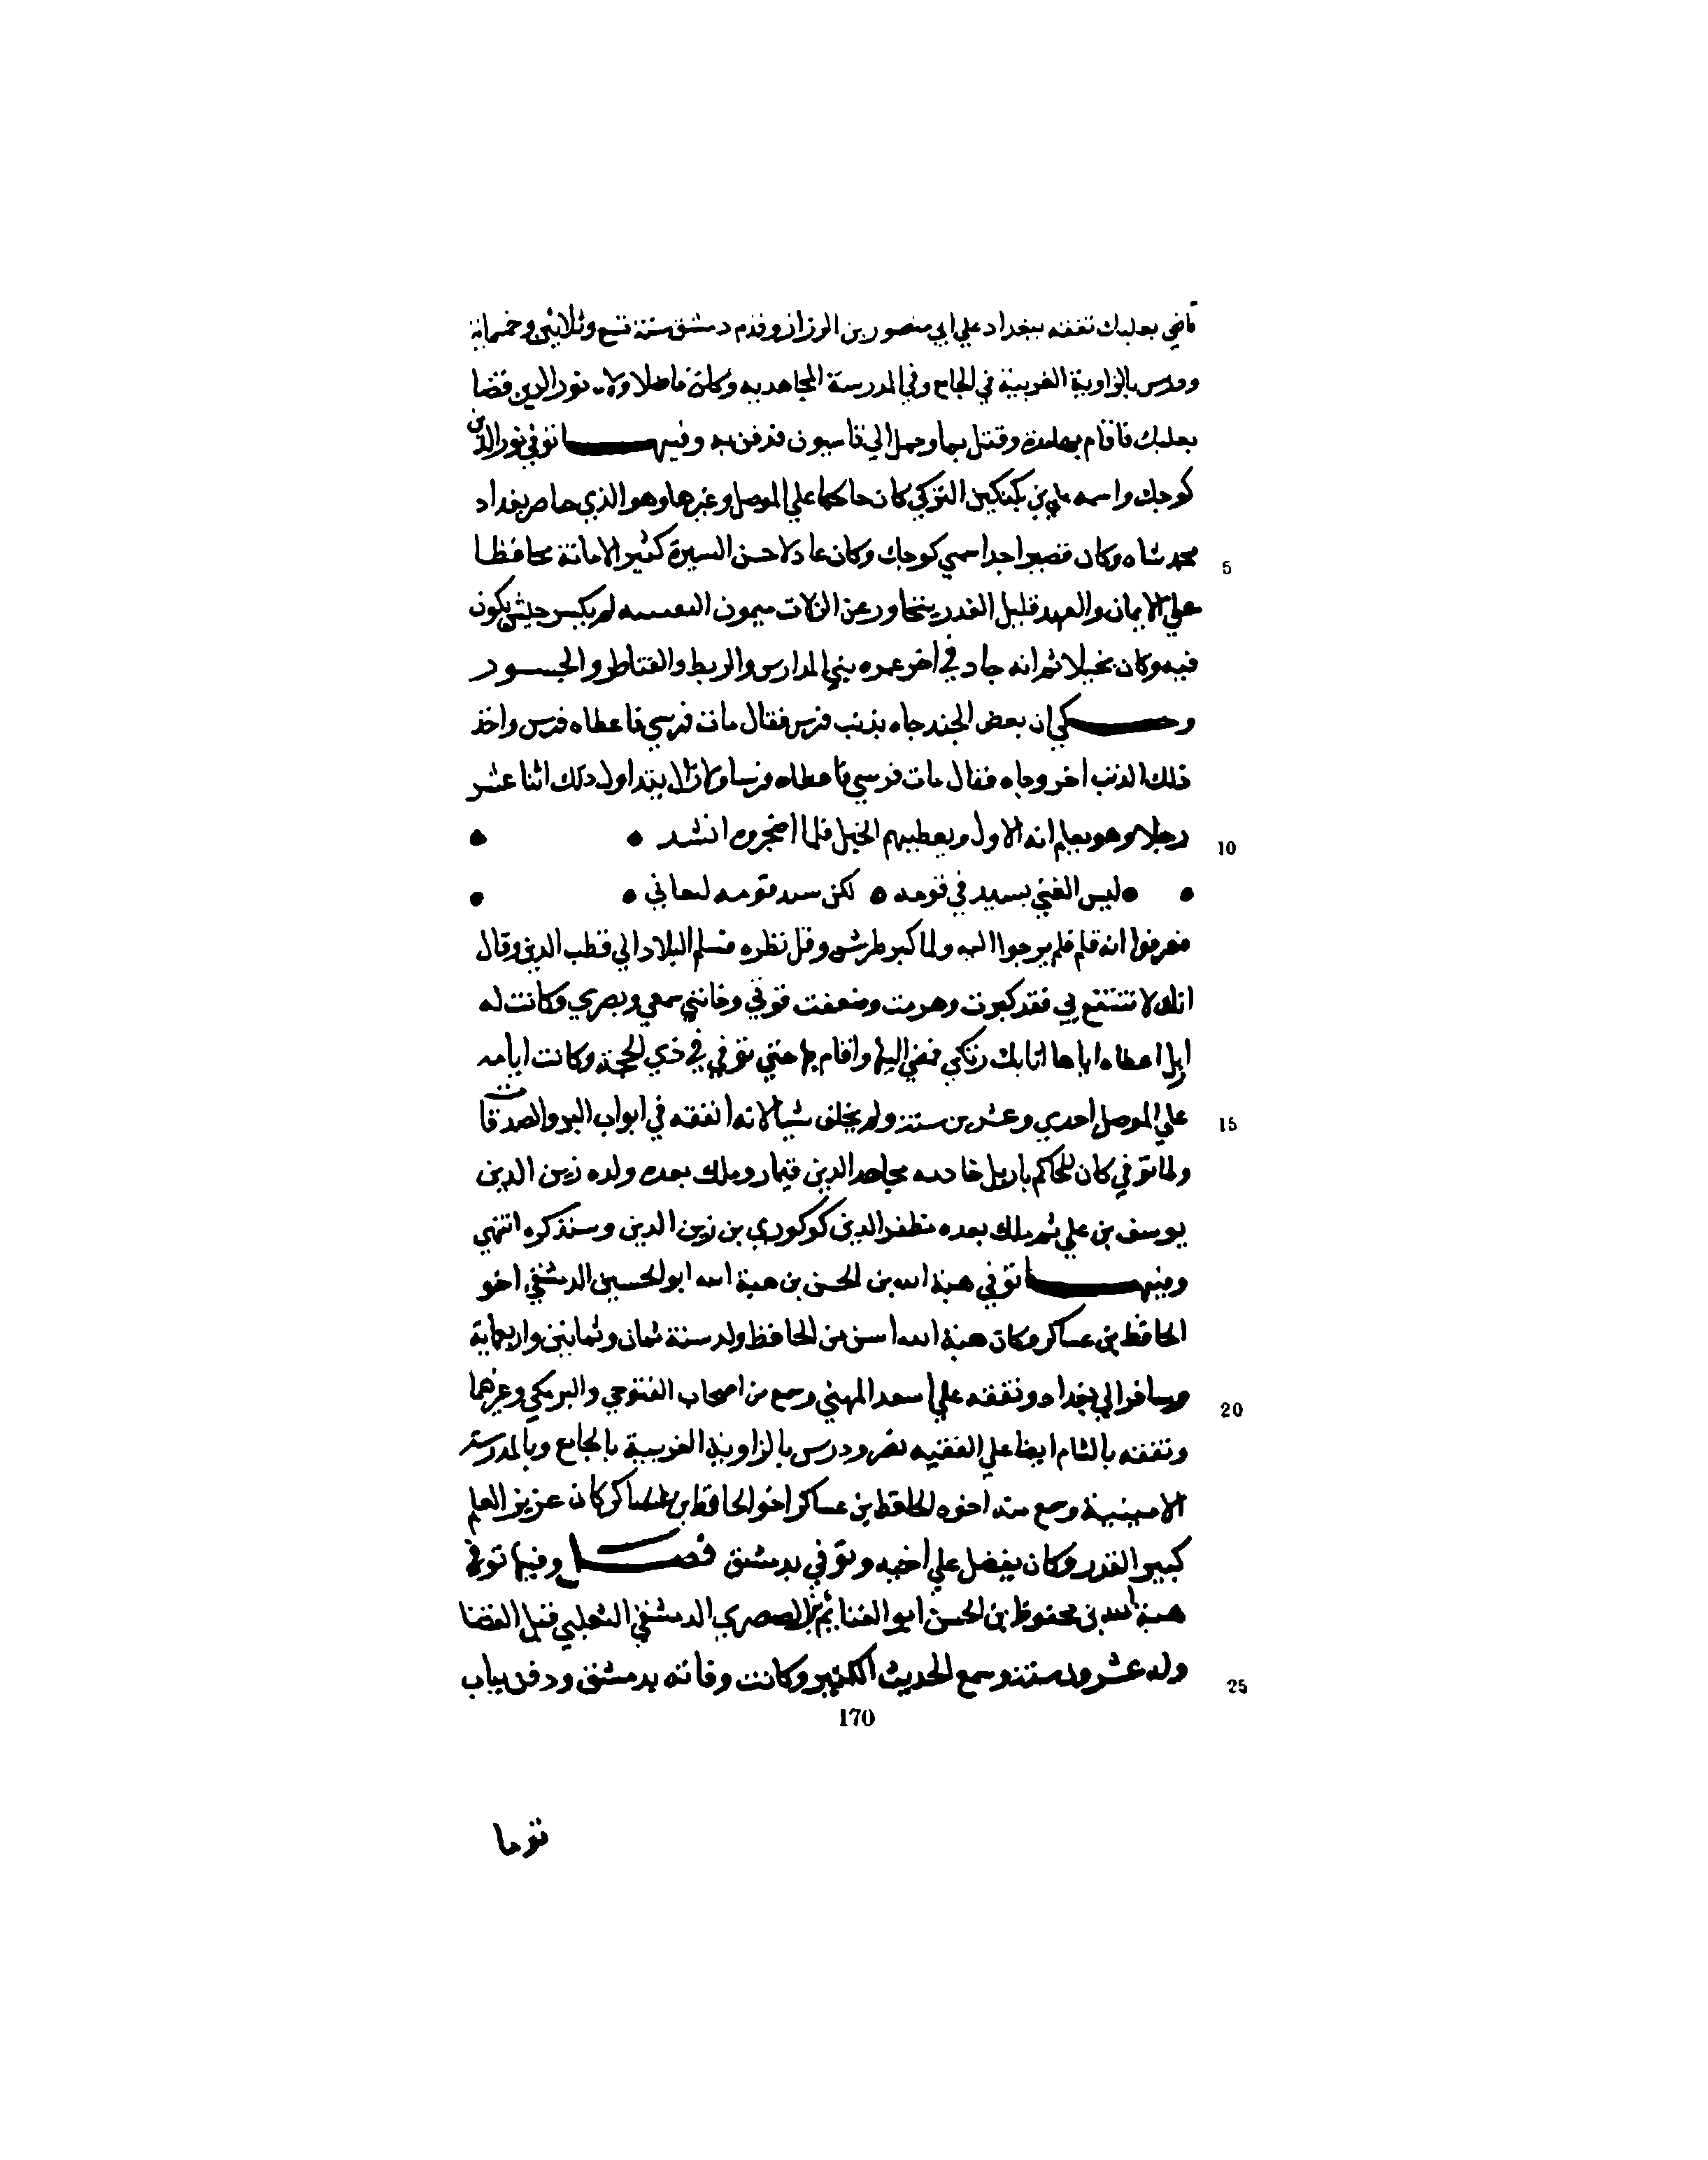 قاضي بعلبك تفقه ببغداد علي ابي منصور بن الرزاز وقدم دمشق سنة تسع وثلاثين وخمسمائة
ودرس بالزاوية الغربية في الجامع وفي المدرسة المجاهدية وكان فاضلا ولاه نور الدين قضا
بعلبك فاقام وقتل بها وحمل الي قاسيون فدفن به وفيها توفي نور الدين
كوجك واسمه علي بن بكتكين التركي كان حاكما علي الموصل وغيرها وهو الذي حاصر بغداد
محمد شاه وكان قصيرا جدا سمي كوجك وكان عادلا حسن السيرة كثير الامانة محافظا 5
علي الايمان والعهد قليل الغدر يتجاوز عن الزلات ميمون النقيبة لم يكسر جيش يكون
فيه وكان بخيلا ثم انه جاد في اخر عمره بني المدارس والربط والقناطر والجسور
وحكي ان بعض الجند جاه بذنب فرس فقال مات فرسي فاعطاه فرس واخذ
ذلك الذنب اخر وجاه فقال مات فرسي فاعطاه فرسا ولازال يتداول ذلك اثنا عشر
رجلا وهو يعلم انه الاول ويعطيهم الخيل فلما اضجروه انشد 10
ليس الغبي بسيد في قومه لكن سيد قومه المتغابي
فعرفوا انه فلم يرجعوا اليه ولما كبر طرش وقل نظره فسلم البلاد الي قطب الدين وقال
انك لا تنتفع بي فقد كبرت وهرمت وضعفت قوتي وخانني سمعي وبصري وكانت له
اربل اعطاه اياها اتابك زنكي فمضي اليها واقام بها حتي توفي في ذي الحجة وكانت ايامه
علي الموصل احدي وعشرين سنة ولم يخلف شيا لانه انفقه في ابواب البر والصدقات 15
ولما توفي كان الحاكم باربل خادمه مجاهد الدين قيماز وملك بعده ولده زين الدين
يوسف بن علي ثم ملك بعده مظفر الدين كوكوري بن زين الدين وسنذكره انتهي
وفيها توفي هبة الله بن الحسن بن هبة الله ابو الحسين الدمشقي اخو
الحافظ بن عساكر وكان هبة الله اسن من الحافظ ولد سنة ثمان وثمانين واربعماية
وسافر الي بغداد وتفقه علي اسعد الميهني وسمع من اصحاب والبرمكي وغيرهما 20
وتفقه بالشام ايضا علي الفقيه نصر ودرس بالزاوية الغربية بالجامع وبالمدرسة
الامينية وسمع منه اخوه الحافظ بن عساكر اخو الحافظ بن عساكر كان عزيز العلم
كبير القدر وكان يفضل علي اخيه وتوفي بدمشق فصل وفيها توفي
هبة الله بن محفوظ بن الحسن ابو الغنائم بن الصصري الدمشقي الثعلبي قبل القضا
وله عشرون سنة وسمع الحديث الكثير وكانت وفاته بدمشق ودفن بباب 25
170
توما